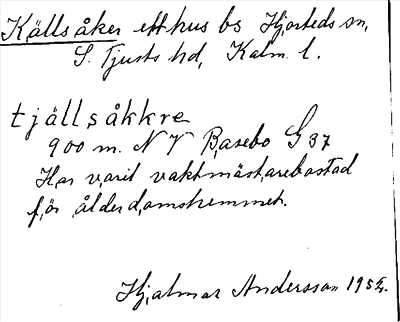 Källsåker ett hus bs Hjorteds sn,
S. Tjusts hd, Kalm. l.
tjällsåkkre
900 m. NV Basebo G 37
Har varit vaktmästarebostad
för ålderdomshemmet.
Hjalmar Andersson 1954.